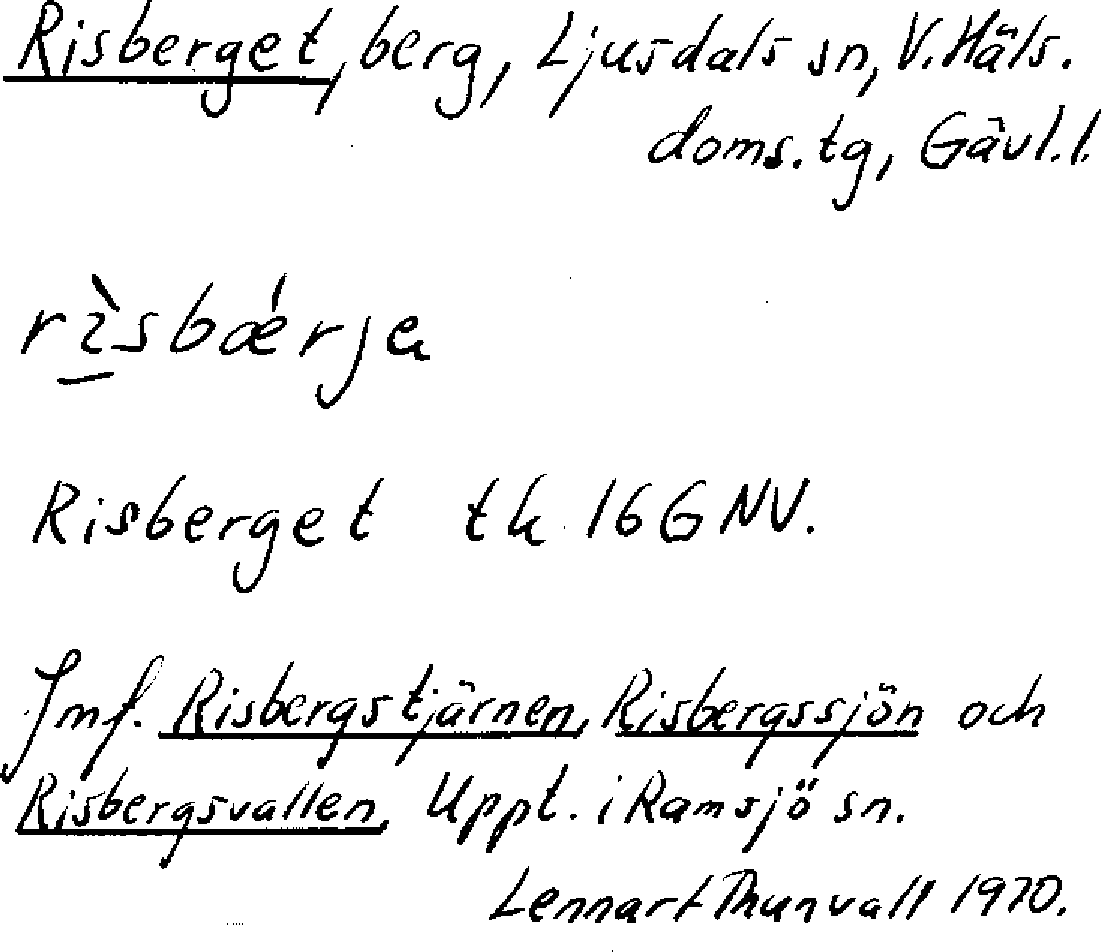 Risberget, berg, Ljusdals sn, V. Häls.
doms. tg, Gävl. l.
rı̱̀sbǽrja
Risberget tk 16G NV.
Jmf. Risbergstjärnen, Risbergssjön och
Risbergsvallen. Uppt. i Ramsjö sn.
Lennart Thunvall 1970.